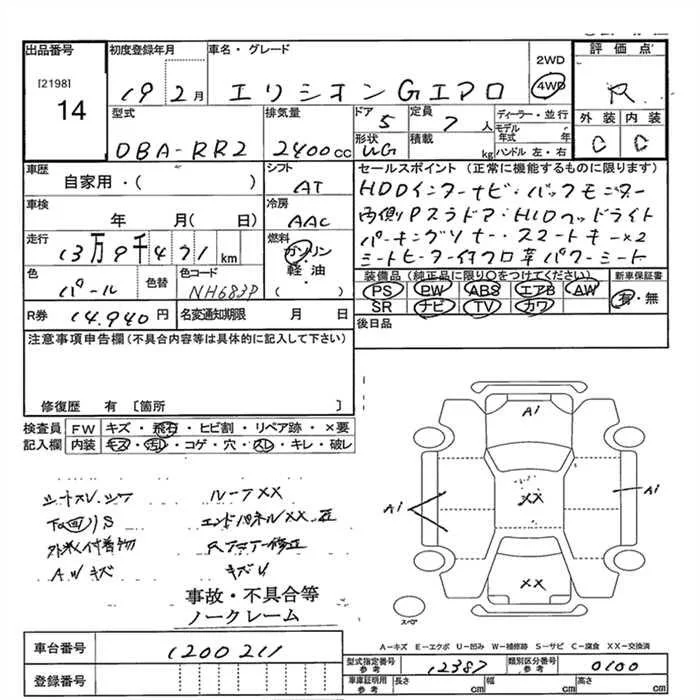 出品番号
初度登録年月
車名・グレード
2WD
評価点
[2198]
14
19 2月
エリシオンGエアロ
4WD
R
型式
排気量
ドア
定員
ディーラー・並行
外装
内装
DBA-RR2
2400cc
5
7人
モデル年式 年
C
C
形状
積載
WG
kg
ハンドル 左・右
車歴
自家用・( )
シフト
AT
セールスポイント (正常に機能するものに限ります)
HDDインターナビ・バックモニター
両側Pスラドア・HIDヘッドライト
パーキングソナー・スマートキー×2
シートヒーター付フロ革パワーシート
車検
年 月( 日)
冷房
AAC
走行
13万9千471km
燃料
ガソリン・軽油・( )
色
パール
色替
色コード
NH683P
装備品 (純正品に限り○をつけてください)
新車保証書
PS PW ABS エアB AW
有・無
SR ナビ TV カワ
R券
14,940円
名変通知期限
月 日
後日品
注意事項申告欄(不具合内容等は具体的に記入して下さい)
修復歴 有 〔箇所 〕
検査員記入欄
FW
キズ・飛石・ヒビ割・リペア跡・×要
内装
キズ・汚レ・コゲ・穴・スレ・キレ・破レ
A1
A1
XX
A1
XX
スペア
シートスレ.シワ
ルーフXX
エンドパネルXX
外 付着物
AWキズ
キズU
事故・不具合等
ノークレーム
A－キズ E－エクボ U－凹み W－補修跡 S－サビ C－腐食 XX－交換済
車台番号
1200211
型式指定番号
参考
12387
類別区分番号
参考
0100
登録番号
車庫証明用
参考
長さ cm
幅 cm
高さ cm